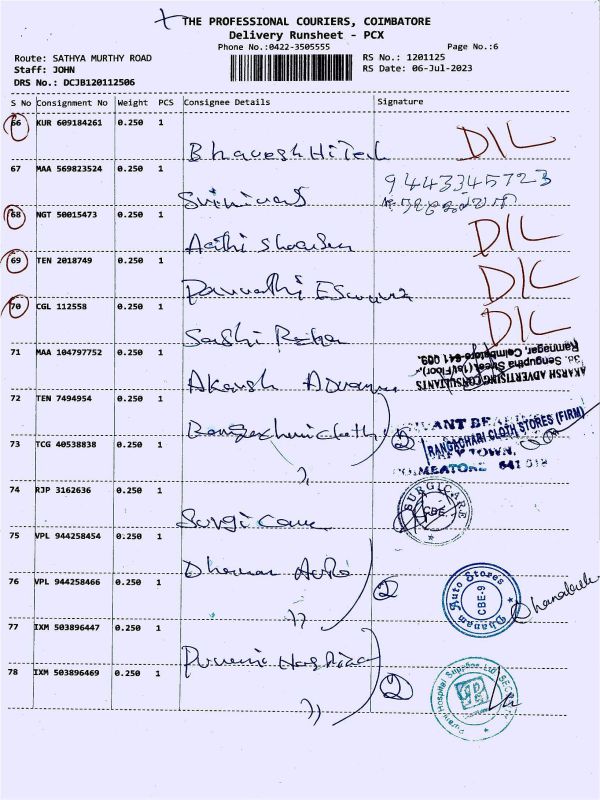 THE PROFESSIONAL COURIERS, COIMBATORE
Delivery Runsheet - PCX
Phone No.:0422-3505555 Page No.:6
Route: SATHYA MURTHY ROAD RS No.: 1201125
Staff: JOHN RS Date: 06-Jul-2023
DRS No.: DCJB120112506
S No Consignment No Weight PCS Consignee Details Signature
66 KUR 609184261 0.250 1
Bhavesh Hi Tech DIL
67 MAA 569823524 0.250 1 9443345723
Srinivas
68 NGT 50015473 0.250 1 DIL
69 TEN 2018749 0.250 1 DIL
70 CGL 112558 0.250 1 DIL
71 MAA 104797752 0.250 1
AKARSH ADVERTISING CONSULTANTS
3d, Senguptha Street (1st Floor)
Ramnagar, Coimbatore-641 009.
72 TEN 7494954 0.250 1
73 TCG 40538838 0.250 1 2
RANGACHARI CLOTH STORES (FIRM)
TOWN,
74 RJP 3162636 0.250 1
Surgi Care SURGICARE CBE
75 VPL 944258454 0.250 1
76 VPL 944258466 0.250 1 2
Dhanam Auto Stores CBE-9
77 IXM 503896447 0.250 1
78 IXM 503896469 0.250 1 2